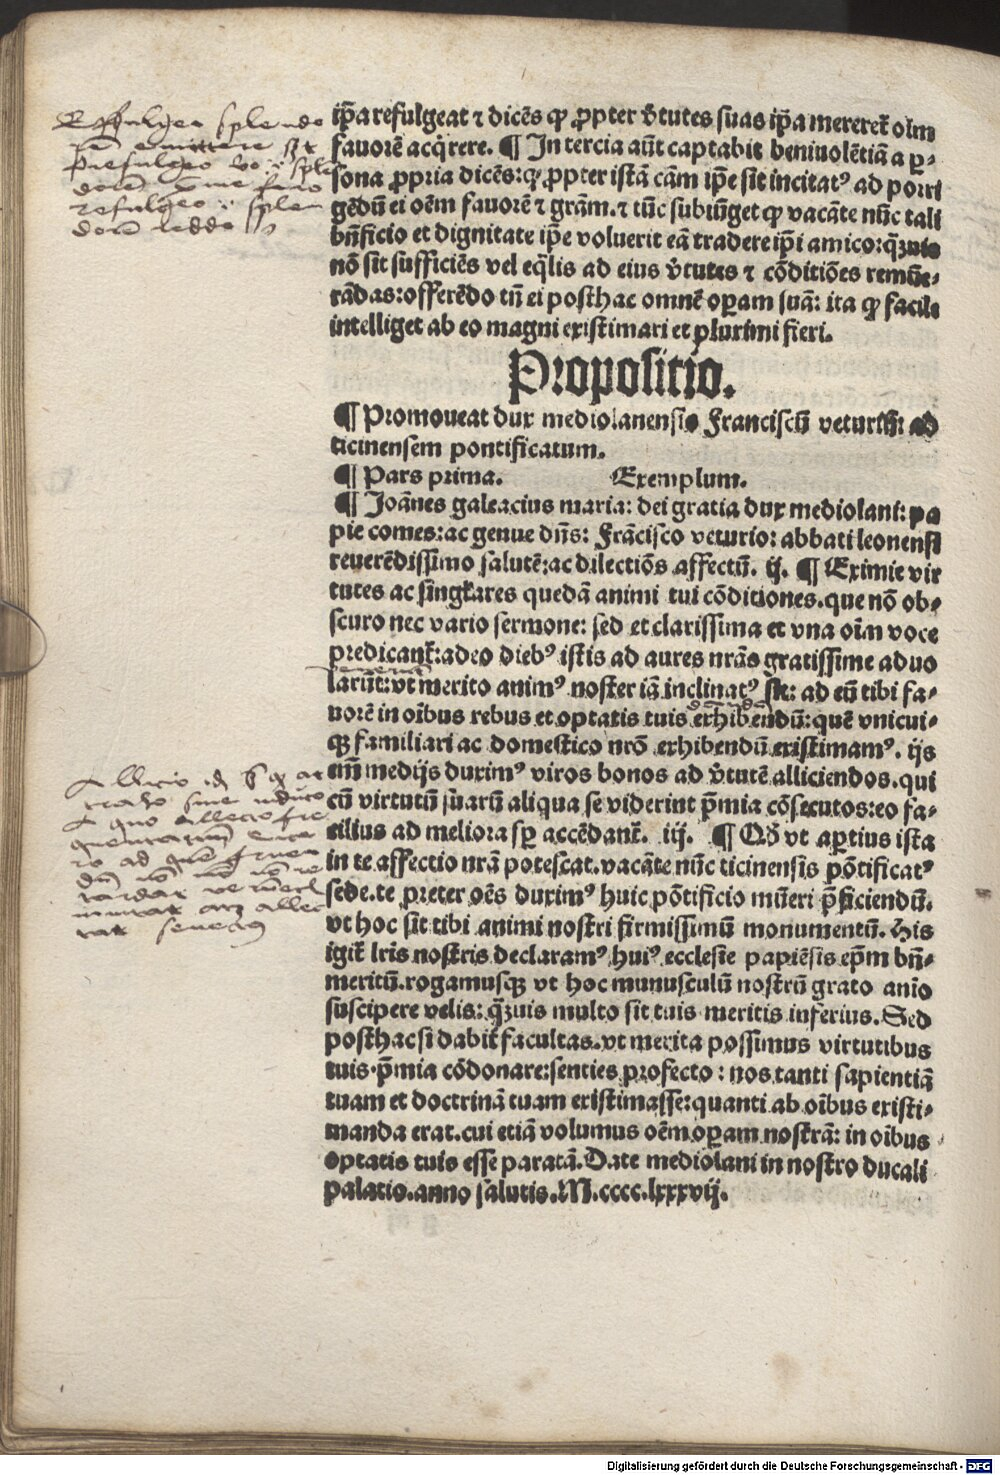 ip̄a refulgeat ⁊ dicēs ꝙ ꝓpter v̄tutes suas ip̄a mereret̄ oīm
fauorē acq̄rere. ¶ In tercia aūt captabit beniuolētiā a ꝑ-
sona ꝓpria dicēs: ꝙ ꝓpter istā cām ip̄e sit incitatꝰ ad porri
gēdū ei oēm fauorē ⁊ grām. ⁊ tūc subiūget ꝙ vacāte nūc tali
bn̄ficio et dignitate ip̄e voluerit eā tradere ip̄i amico: q̄ȝuis
nō sit sufficiēs vel eq̄lis ad eius v̄tutes ⁊ cōditiōes remūe-
rādas: offerēdo tn̄ ei posthac omnē oꝑam suā: ita ꝙ facile
intelliget ab eo magni existimari et plurimi fieri.
Propositio.
¶ Promoueat dux mediolanensis Franciscū veturiū: ad
ticinensem pontificatum.
¶ Pars prima. Exemplum.
¶ Joānes galeacius maria: dei gratia dux mediolani: pa
pie comes: ac genue dn̄s: Frācisco veturio: abbati leonensi
reuerēdissimo salutē: ac dilectiōs affectū. ij. ¶ Eximie vir
tutes ac singl̄ares quedā animi tui cōditiones. que nō ob-
scuro nec vario sermone: sed et clarissima et vna oīm voce
predicant̄: adeo diebꝰ istis ad aures nrās gratissime aduo
larūt: vt merito animꝰ noster iā inclinatꝰ sit: ad eū tibi fa-
uorē in oībus rebus et optatis tuis exhibendū: quē vnicui-
qꝫ familiari ac domestico nrō exhibendū existimamꝰ. ijs
em̄ medijs duximꝰ viros bonos ad v̄tutē alliciendos. qui
cū virtutū suarū aliqua se viderint p̄mia cōsecutos: eo fa-
cilius ad meliora sꝑ accēdant̄. iij. ¶ Qđ vt aꝑtius ista
in te affectio nrā potescat. vacāte nūc ticinensis pōtificatꝰ
sede. te preter oēs duximꝰ huic pōtificio mūeri p̄ficiendū.
vt hoc sit tibi animi nostri firmissimū monumentū. His
igit̄ lrīs nostris declaramꝰ huiꝰ ecclesie papiēsis ep̄m bn̄-
meritū. rogamusqꝫ vt hoc munusculū nostrū grato anīo
suscipere velis: q̄ȝuis multo sit tuis meritis inferius. Sed
posthac si dabit̄ facultas. vt merita possimus virtutibus
tuis p̄mia cōdonare: senties profecto: nos tanti sapientiā
tuam et doctrinā tuam existimasse: quanti ab oībus existi-
manda erat. cui etiā volumus oēm oꝑam nostrā: in oībus
optatis tuis esse paratā. Date mediolani in nostro ducali
palatio. anno salutis. M. cccc. lxxxvij.
Refulgeo splendo
rem emittere
Prefulgeo
refulgeo splen
dorē reddo
Allicio
Digitalisierung gefördert durch die Deutsche Forschungsgemeinschaft - DFG